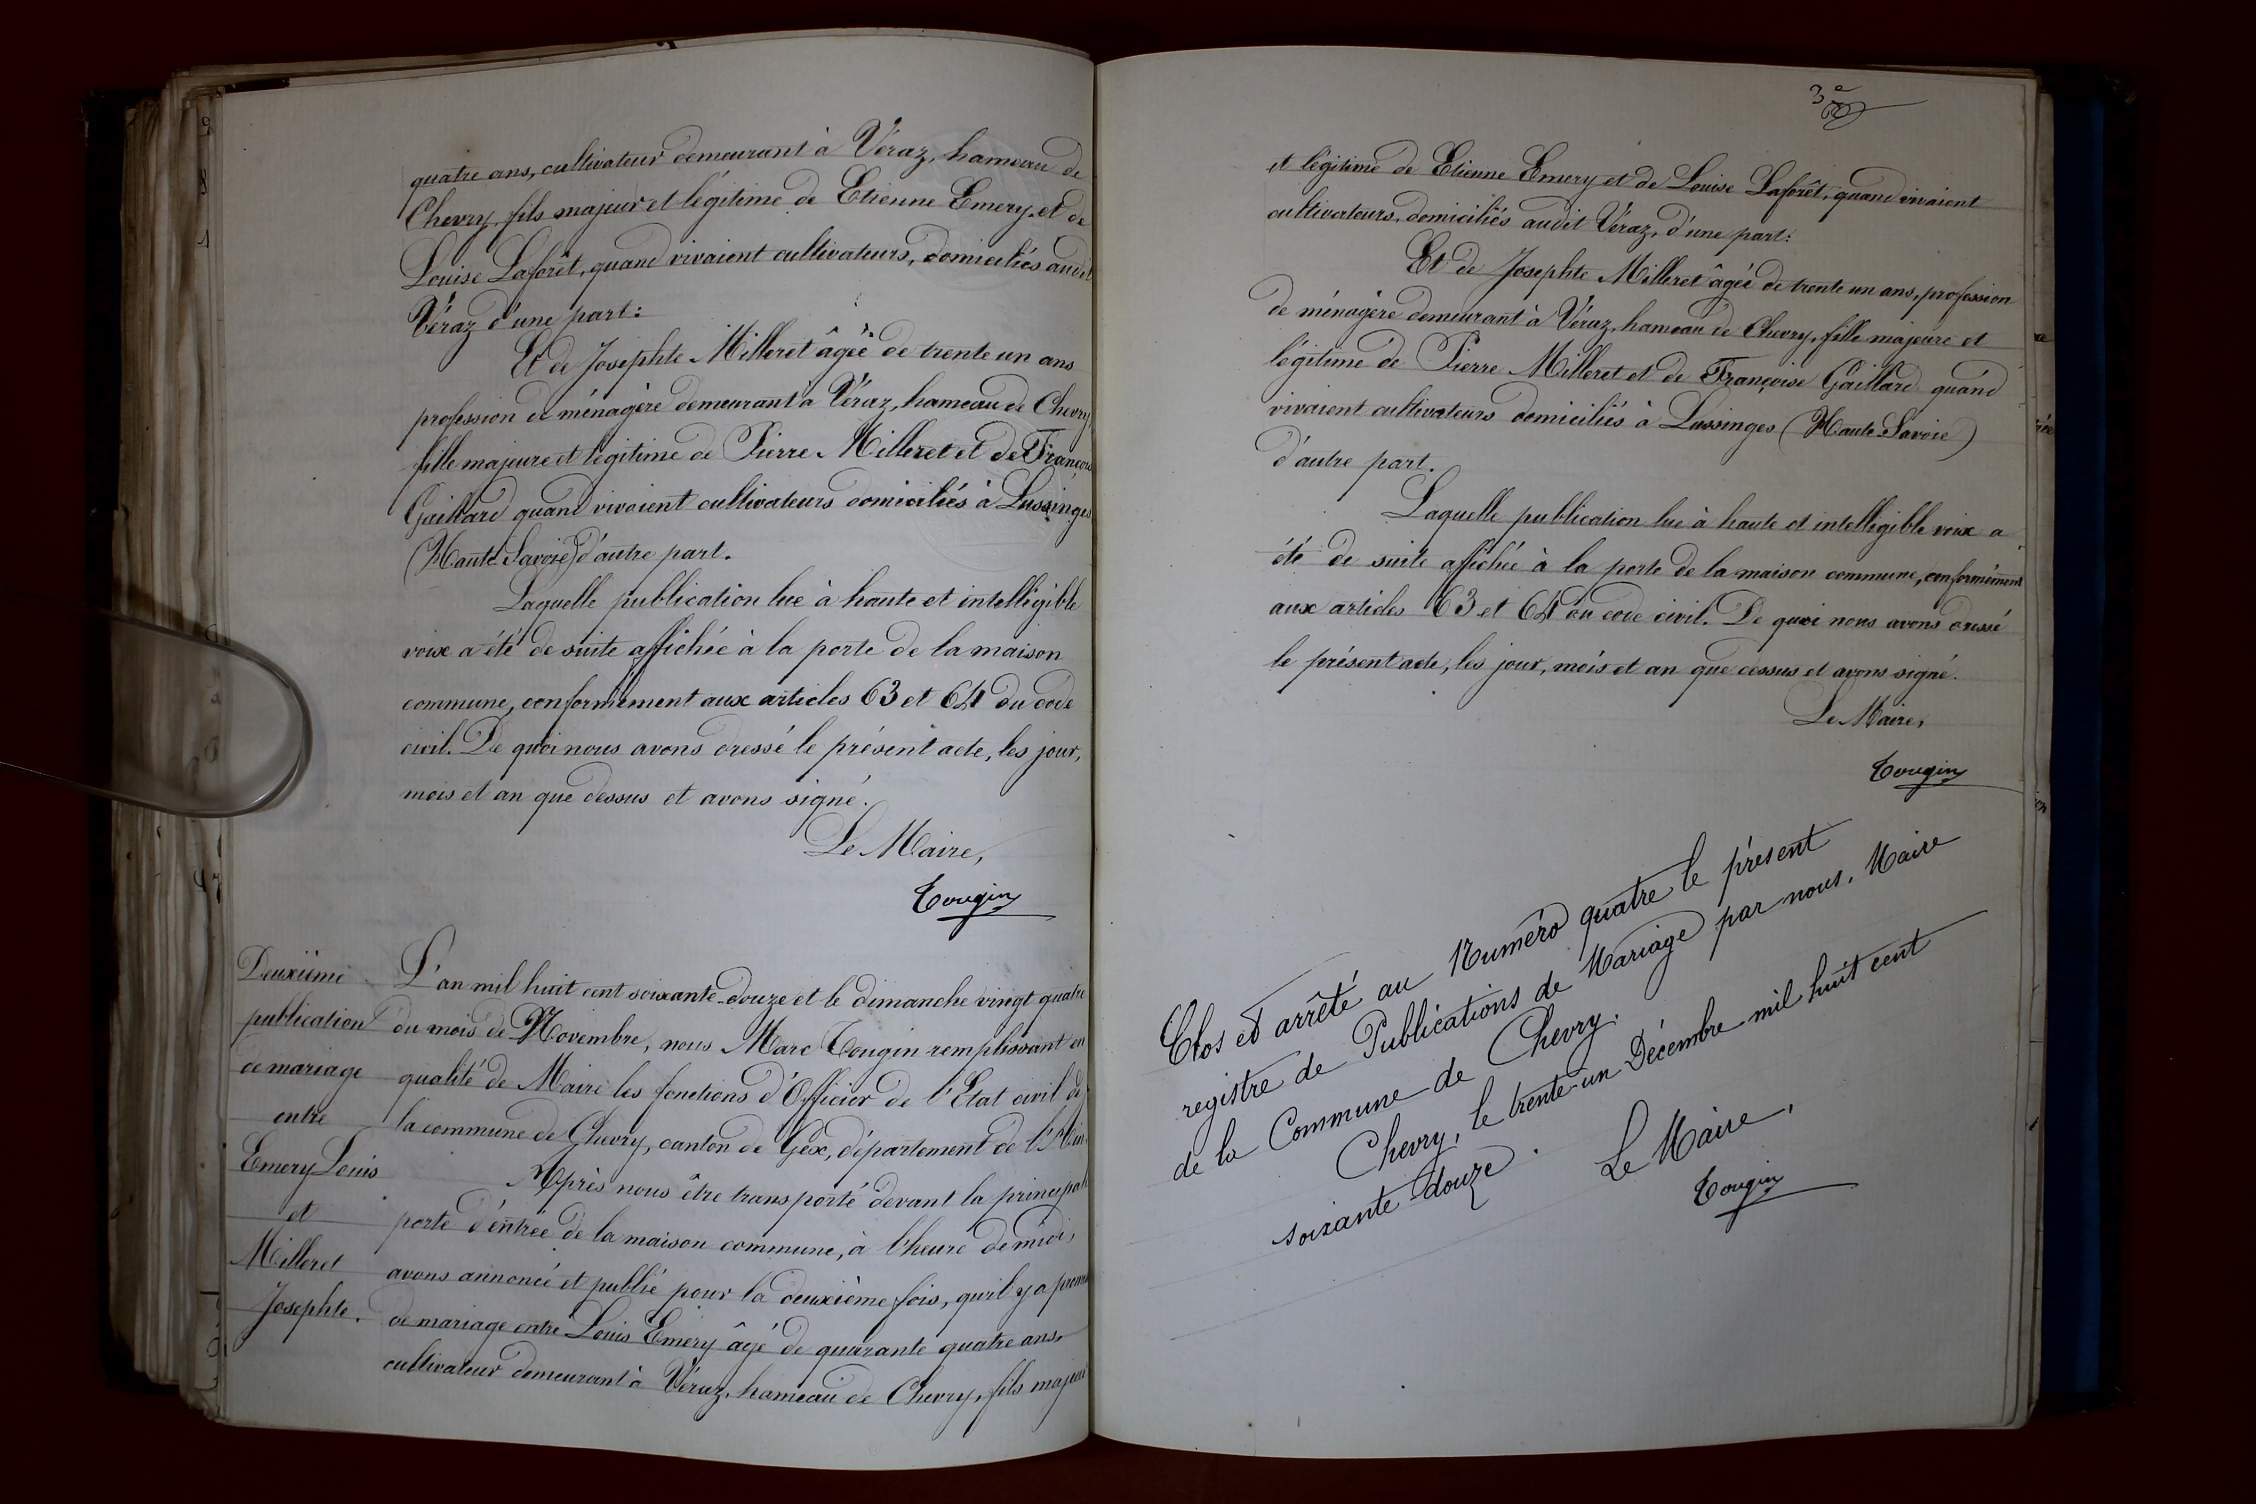 quatre ans, cultivateur demeurant à Véraz, hameau de
Chevry, fils majeur et légitime de Etienne Emery et de
Louise Laforêt, quand vivaient cultivateurs, domiciliés audit
Véraz d'une part:
Et de Josephte Milleret âgée de trente un ans
profession de ménagère demeurant à Véraz, hameau de Chevry,
fille majeure et légitime de Pierre Milleret et de Françoise
Gaillard quand vivaient cultivateurs domiciliés à Lussinges
(Haute Savoie) d'autre part.
Laquelle publication lue à haute et intelligible
voix a été de suite affichée à la porte de la maison
commune, conformément aux articles 63 et 64 du code
civil. De quoi nous avons dressé le présent acte, les jour,
mois et an que dessus et avons signé.
Le Maire,
Tougin
Deuxième
publication
de mariage
entre
Emery Louis
et
Milleret
Josephte.
L'an mil huit cent soixante-douze et le dimanche vingt quatre
du mois de Novembre, nous Marc Tougin remplissant en
qualité de Maire les fonctions d'Officier de l'Etat civil de
la commune de Chevry, canton de Gex, département de l'Ain
Après nous être transporté devant la principale
porte d'entrée de la maison commune, à l'heure de midi,
avons annoncé et publié pour la deuxième fois, qu'il y a
de mariage entre Louis Emery âgé de quarante quatre ans,
cultivateur demeurant à Véraz, hameau de Chevry, fils majeur
3e
et légitime de Etienne Emery et de Louise Laforêt, quand vivaient
cultivateurs, domiciliés audit Véraz, d'une part:
Et de Josephte Milleret âgée de trente un ans, profession
de ménagère demeurant à Véraz, hameau de Chevry, fille majeure et
légitime de Pierre Milleret et de Françoise Gaillard quand
vivaient cultivateurs domiciliés à Lussinges (Haute-Savoie)
d'autre part.
Laquelle publication lue à haute et intelligible voix a
été de suite affichée à la porte de la maison commune, conformément
aux articles 63 et 64 du code civil. De quoi nous avons dressé
le présent acte, les jour, mois et an que dessus et avons signé.
Le Maire,
Tougin
Clos et arrêté au Numéro quatre le présent
registre de Publications de Mariage par nous, Maire
de la Commune de Chevry.
Chevry, le trente-un Décembre mil huit cent
soixante-douze.
Le Maire,
Tougin